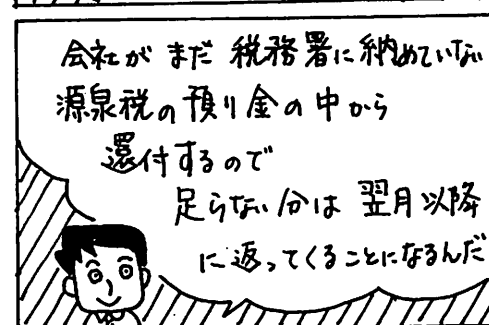 会社がまだ税務署に納めていない
源泉税の預り金の中から
還付するので
足らない分は翌月以降
に返ってくることになるんだ